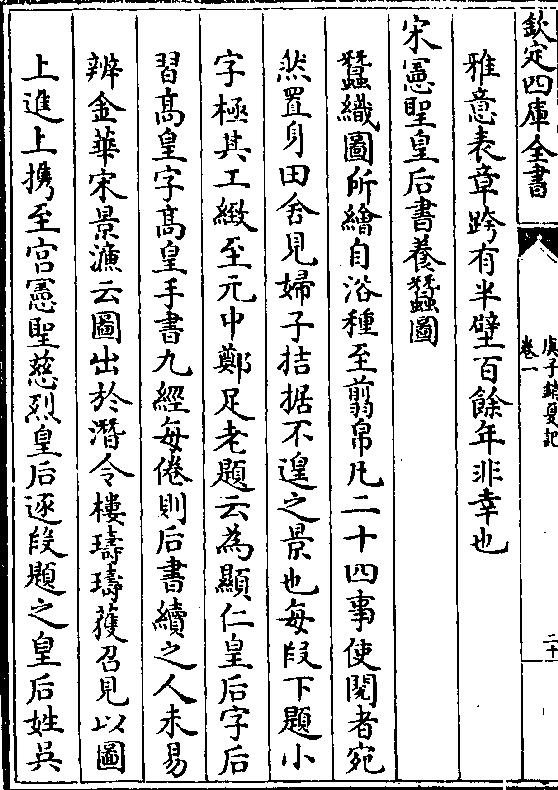 欽定四庫全書
庚子銷夏記
卷一
二十
雅意表章跨有半壁百餘年非幸也
宋憲聖皇后書養蠶圖
蠶織圖所繪自浴種至翦帛凡二十四事使閱者宛
然置身田舍見婦子拮据不遑之景也每段下題小
字極其工緻至元中鄭足老題云為顯仁皇后字后
習髙皇字髙皇手書九經每倦則后書續之人未易
辨金華宋景濂云圖出於潛令樓璹璹獲召見以圖
上進上携至宫憲聖慈烈皇后逐段題之皇后姓吳